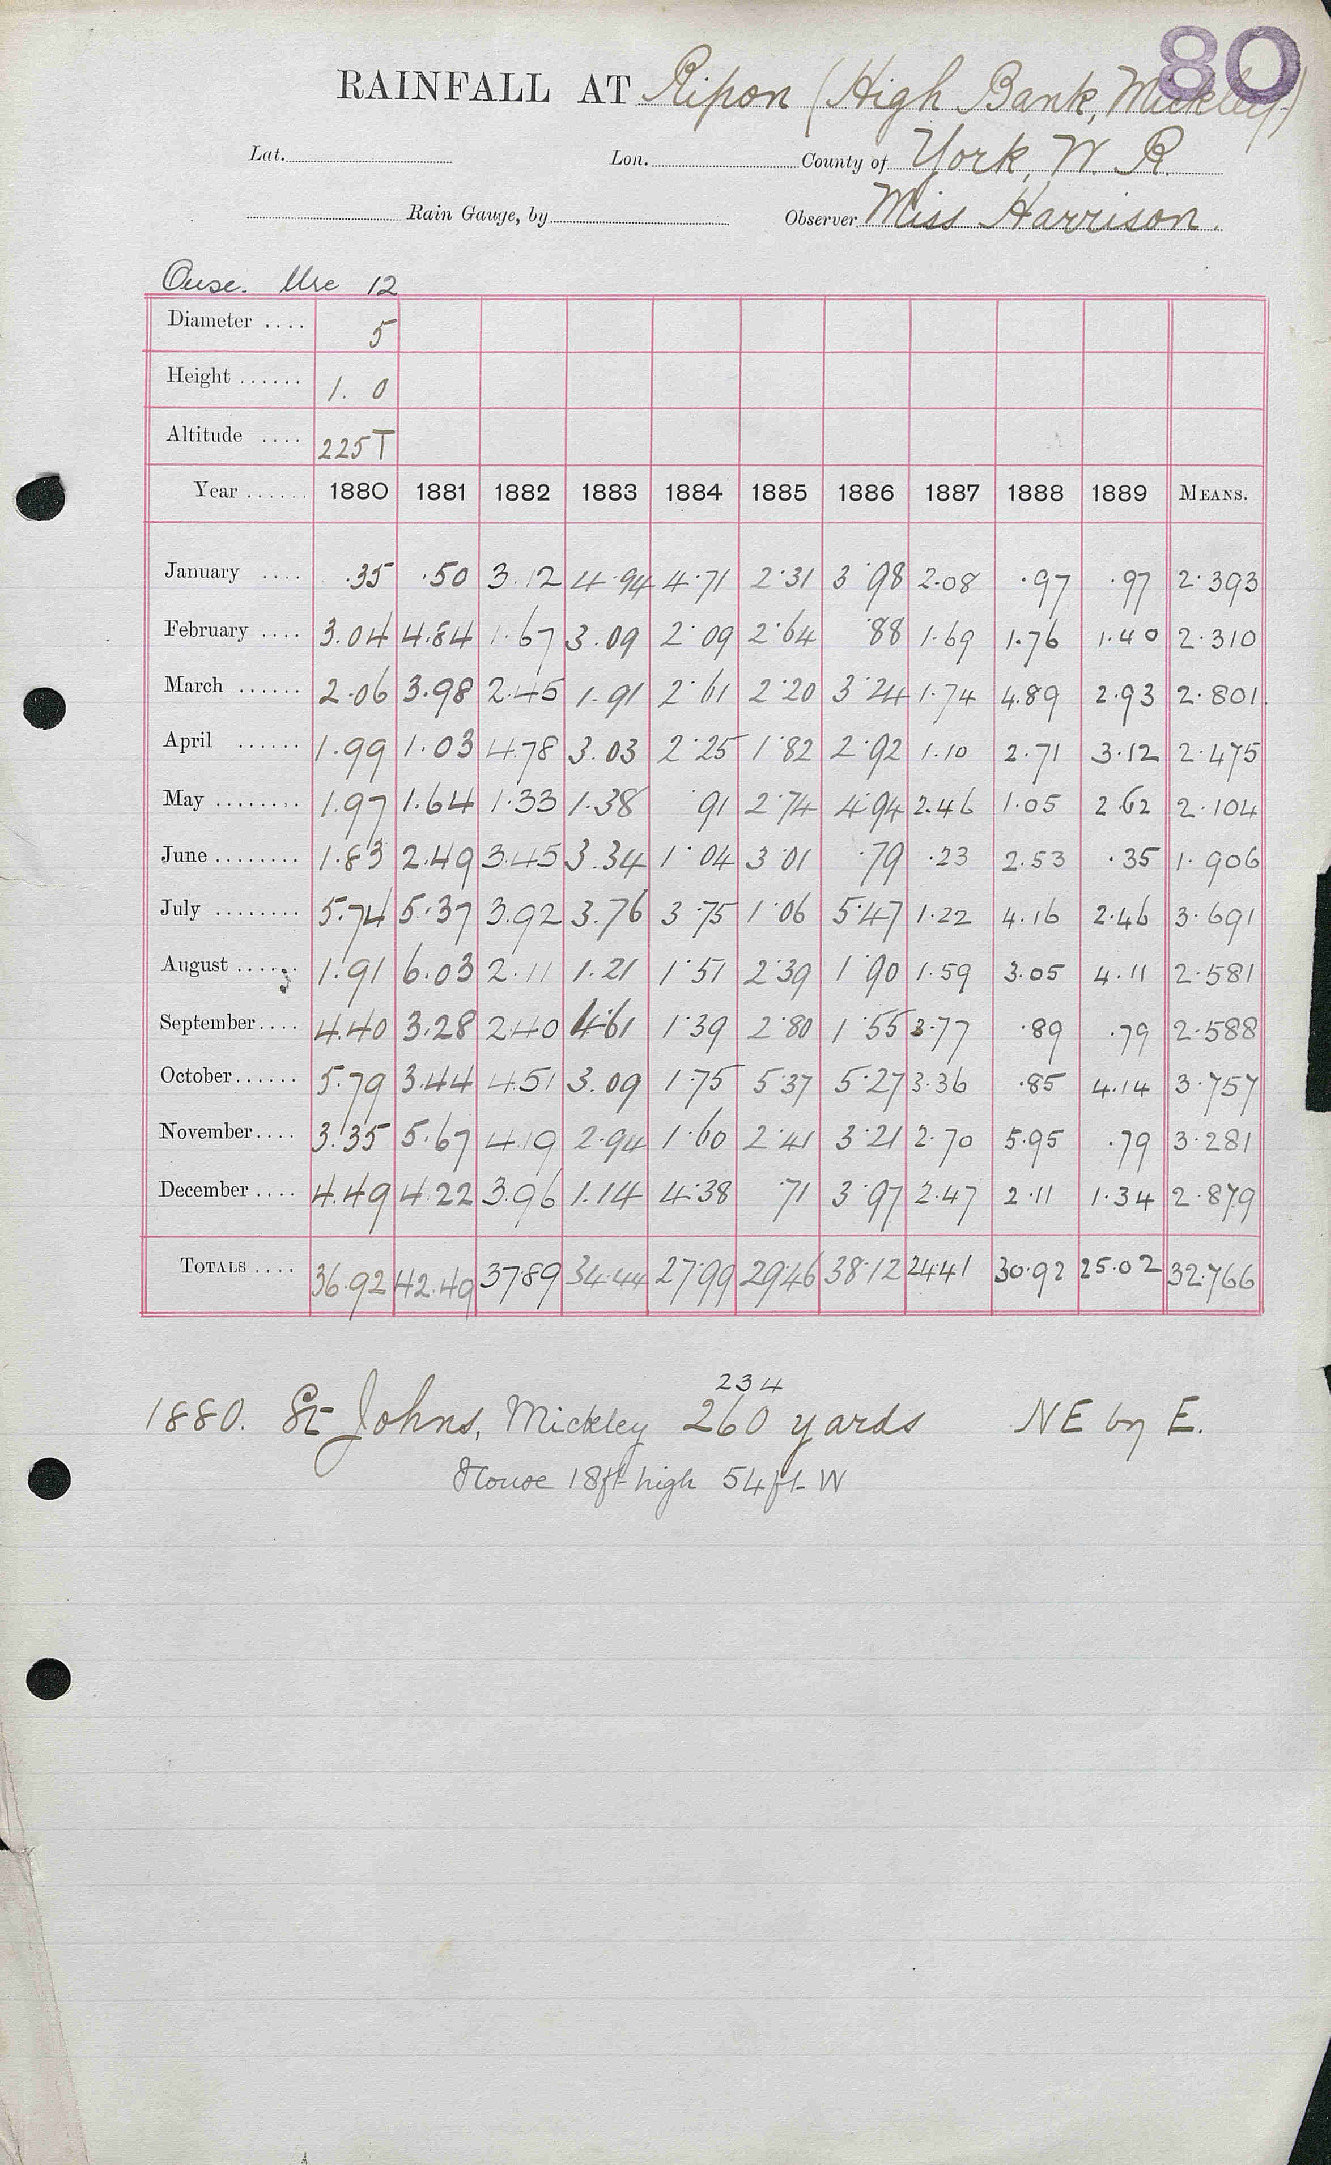 80
RAINFALL AT Ripon (High Bank, Mickley)
Lat. Lon. County of York, W. R.
Rain Gauge, by Observer Miss Harrison.
Ouse. Ure 12
Diameter .... 5
Height ...... 1. 0
Altitude .... 225 T
Year ...... 1880 1881 1882 1883 1884 1885 1886 1887 1888 1889 MEANS.
January .... .35 .50 3.12 4.94 4.71 2.31 3.98 2.08 .97 .97 2.393
February .... 3.04 4.84 1.67 3.09 2.09 2.64 .88 1.69 1.76 1.40 2.310
March ...... 2.06 3.98 2.45 1.91 2.61 2.20 3.24 1.74 4.89 2.93 2.801
April ...... 1.99 1.03 4.78 3.03 2.25 1.82 2.92 1.10 2.71 3.12 2.475
May ........ 1.97 1.64 1.33 1.38 .91 2.74 4.94 2.46 1.05 2.62 2.104
June ........ 1.83 2.49 3.45 3.34 1.04 3.01 .79 .23 2.53 .35 1.906
July ........ 5.74 5.37 3.92 3.76 3.75 1.06 5.47 1.22 4.16 2.46 3.691
August ...... 1.91 6.03 2.11 1.21 1.51 2.39 1.90 1.59 3.05 4.11 2.581
September.... 4.40 3.28 2.40 4.61 1.39 2.80 1.55 3.77 .89 .79 2.588
October...... 5.79 3.44 4.51 3.09 1.75 5.37 5.27 3.36 .85 4.14 3.757
November.... 3.35 5.67 4.19 2.94 1.60 2.41 3.21 2.70 5.95 .79 3.281
December .... 4.49 4.22 3.96 1.14 4.38 .71 3.97 2.47 2.11 1.34 2.879
TOTALS .... 36.92 42.49 37.89 34.44 27.99 29.46 38.12 24.41 30.92 25.02 32.766
234
1880. St Johns, Mickley 260 yards NE by E.
House 18ft high 54ft W